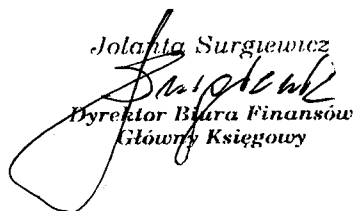 Jolanta Surgiewicz
Dyrektor Biura Finansów
Główny Księgowy